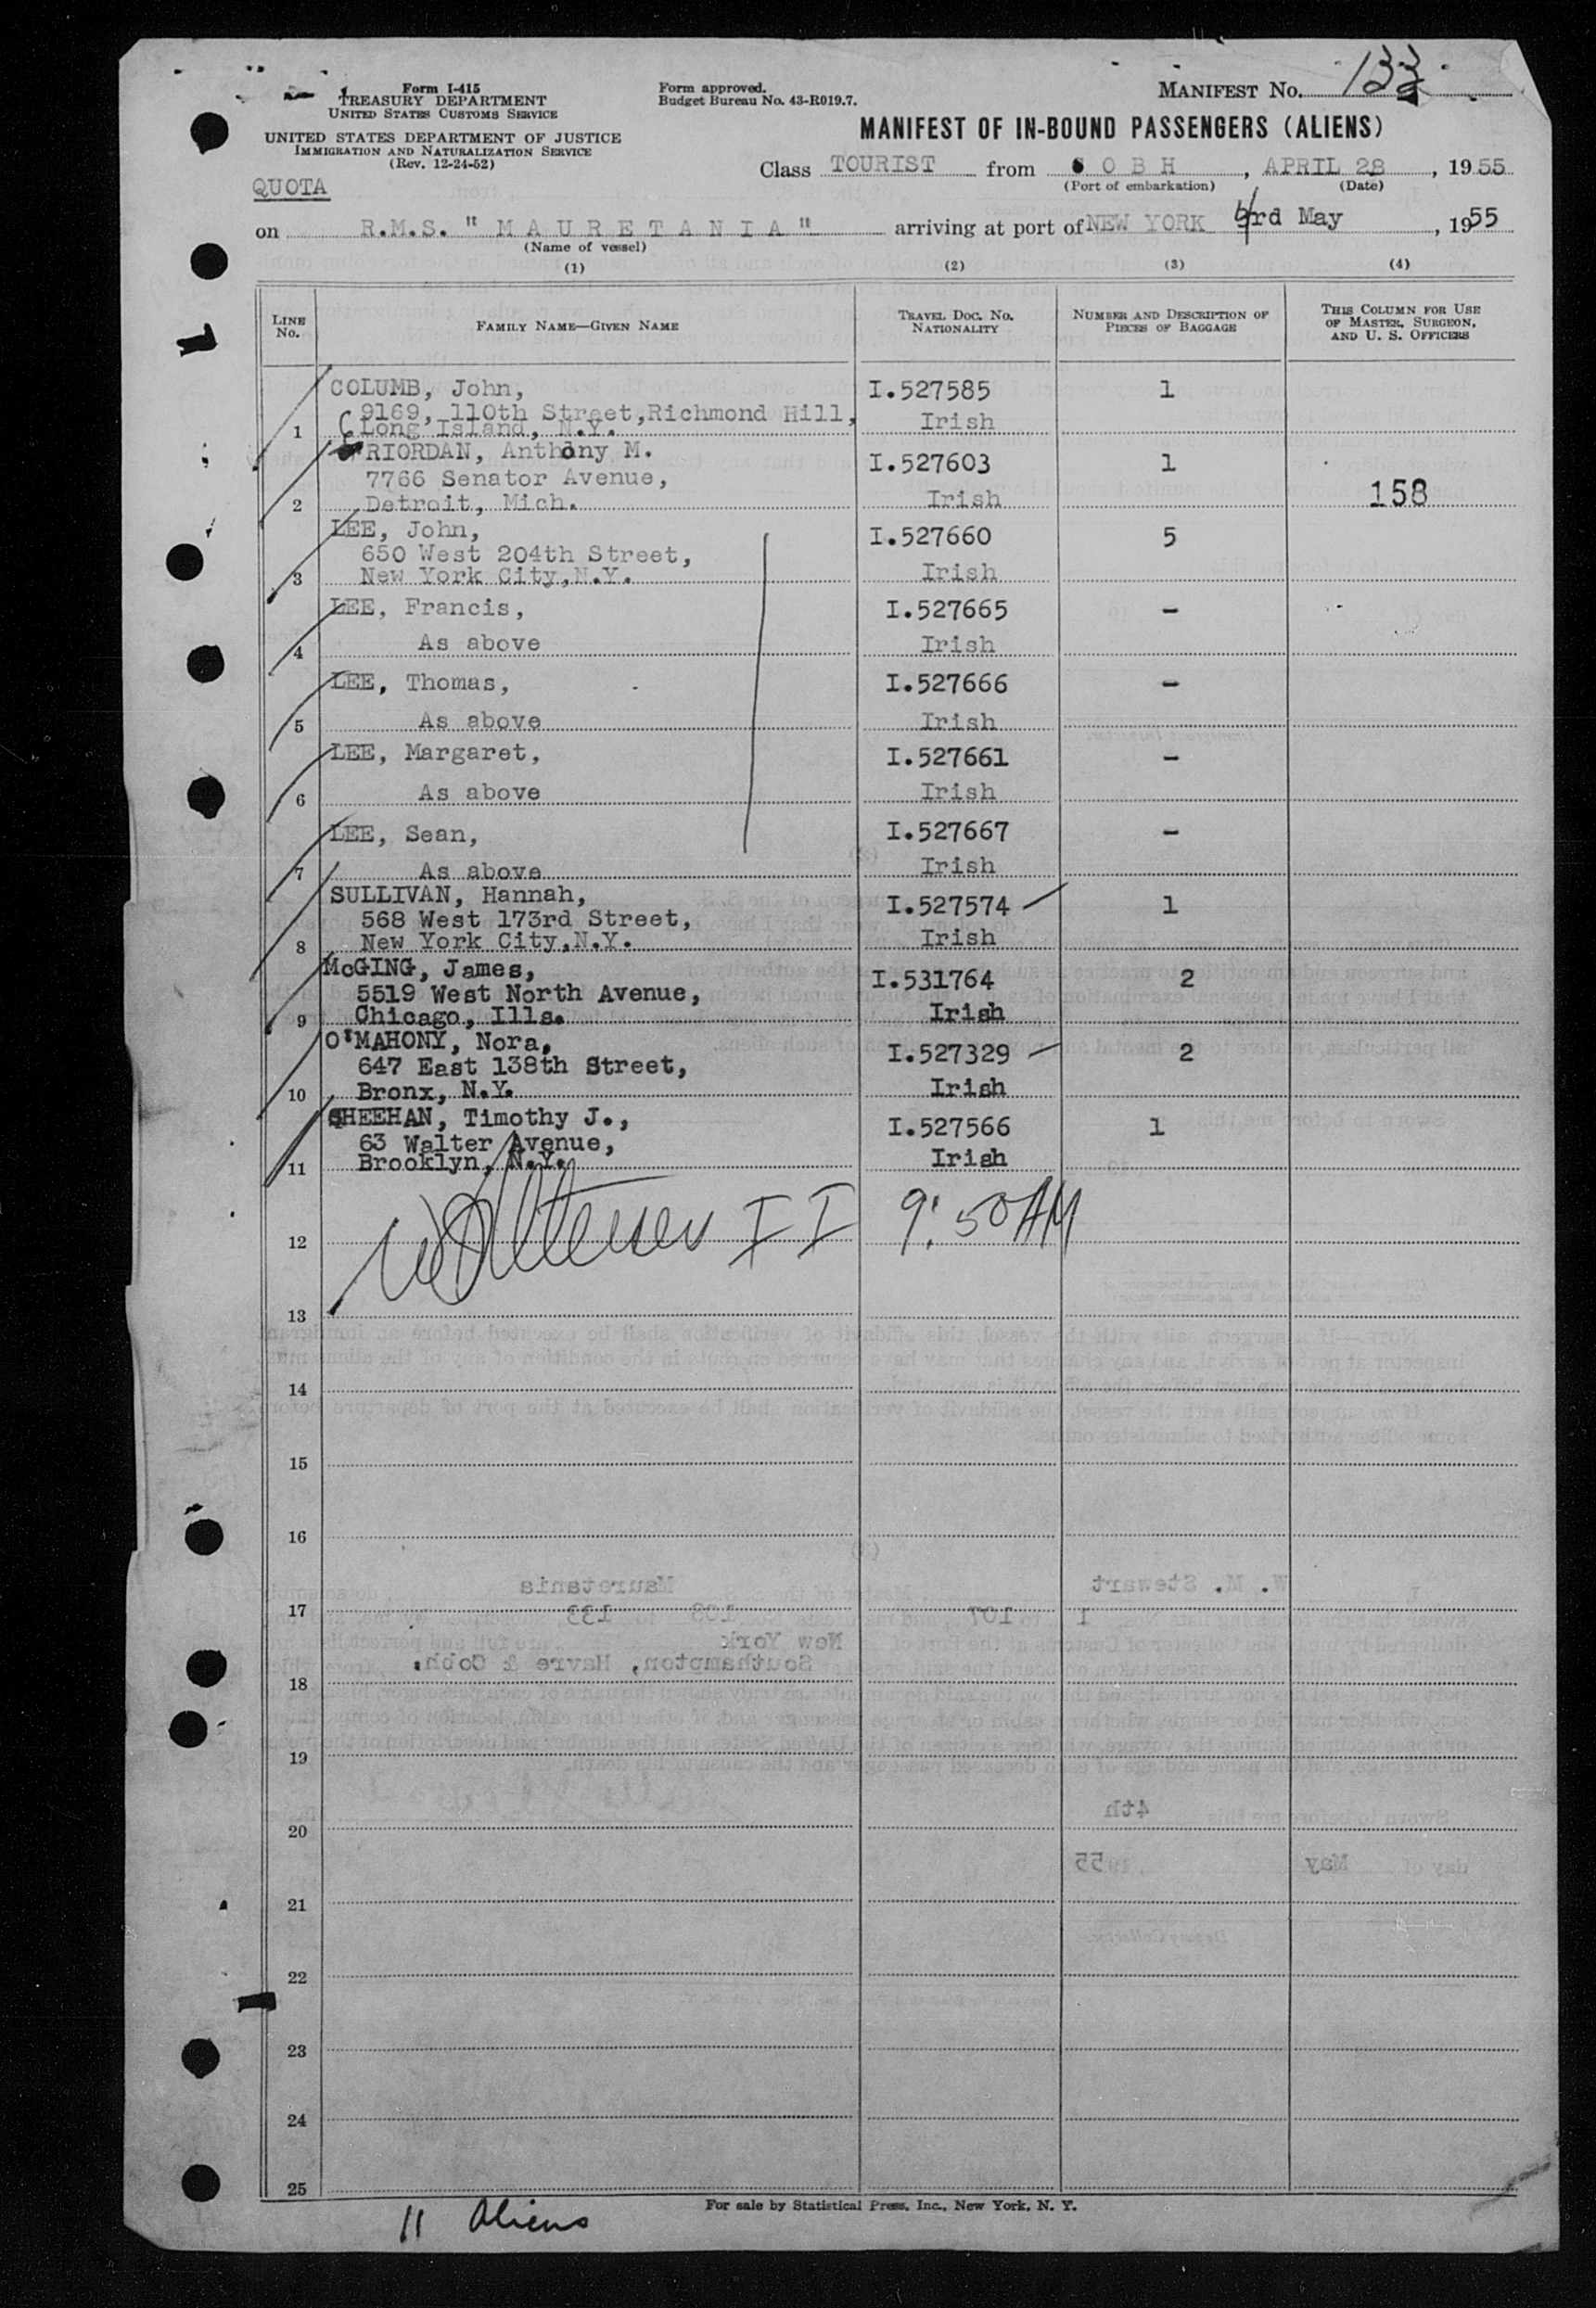 Form I-415
TREASURY DEPARTMENT
UNITED STATES CUSTOMS SERVICE
UNITED STATES DEPARTMENT OF JUSTICE
IMMIGRATION AND NATURALIZATION SERVICE
(Rev. 12-24-52)
Form approved.
Budget Bureau No. 43-R019.7.
MANIFEST No. 133
MANIFEST OF IN-BOUND PASSENGERS (ALIENS)
Class TOURIST from COBH, APRIL 28, 1955
(Port of embarkation) (Date)
QUOTA
on R.M.S. "MAURETANIA" arriving at port of NEW YORK rd May, 1955
(Name of vessel)
(1) (2) (3) (4)
LINE No. FAMILY NAME—GIVEN NAME TRAVEL DOC. NO. NATIONALITY NUMBER AND DESCRIPTION OF PIECES OF BAGGAGE THIS COLUMN FOR USE OF MASTER, SURGEON, AND U. S. OFFICERS
COLUMB, John, I.527585 1
9169, 110th Street,Richmond Hill, Irish
1 Long Island, N.Y.
RIORDAN, Anthony M. I.527603 1
7766 Senator Avenue,
2 Detroit, Mich. Irish 158
LEE, John, I.527660 5
650 West 204th Street,
3 New York City,N.Y. Irish
LEE, Francis, I.527665 -
4 As above Irish
LEE, Thomas, I.527666 -
5 As above Irish
LEE, Margaret, I.527661 -
6 As above Irish
LEE, Sean, I.527667 -
7 As above Irish
SULLIVAN, Hannah, I.527574 1
568 West 173rd Street,
8 New York City,N.Y. Irish
McGING, James, I.531764 2
5519 West North Avenue,
9 Chicago, Ills. Irish
O'MAHONY, Nora, I.527329 2
647 East 138th Street,
10 Bronx, N.Y. Irish
SHEEHAN, Timothy J., I.527566 1
63 Walter Avenue,
11 Brooklyn, N.Y. Irish
12 II 9:50 AM
13
14
15
16
17
18
19
20
21
22
23
24
25
For sale by Statistical Press, Inc., New York, N. Y.
11 Aliens